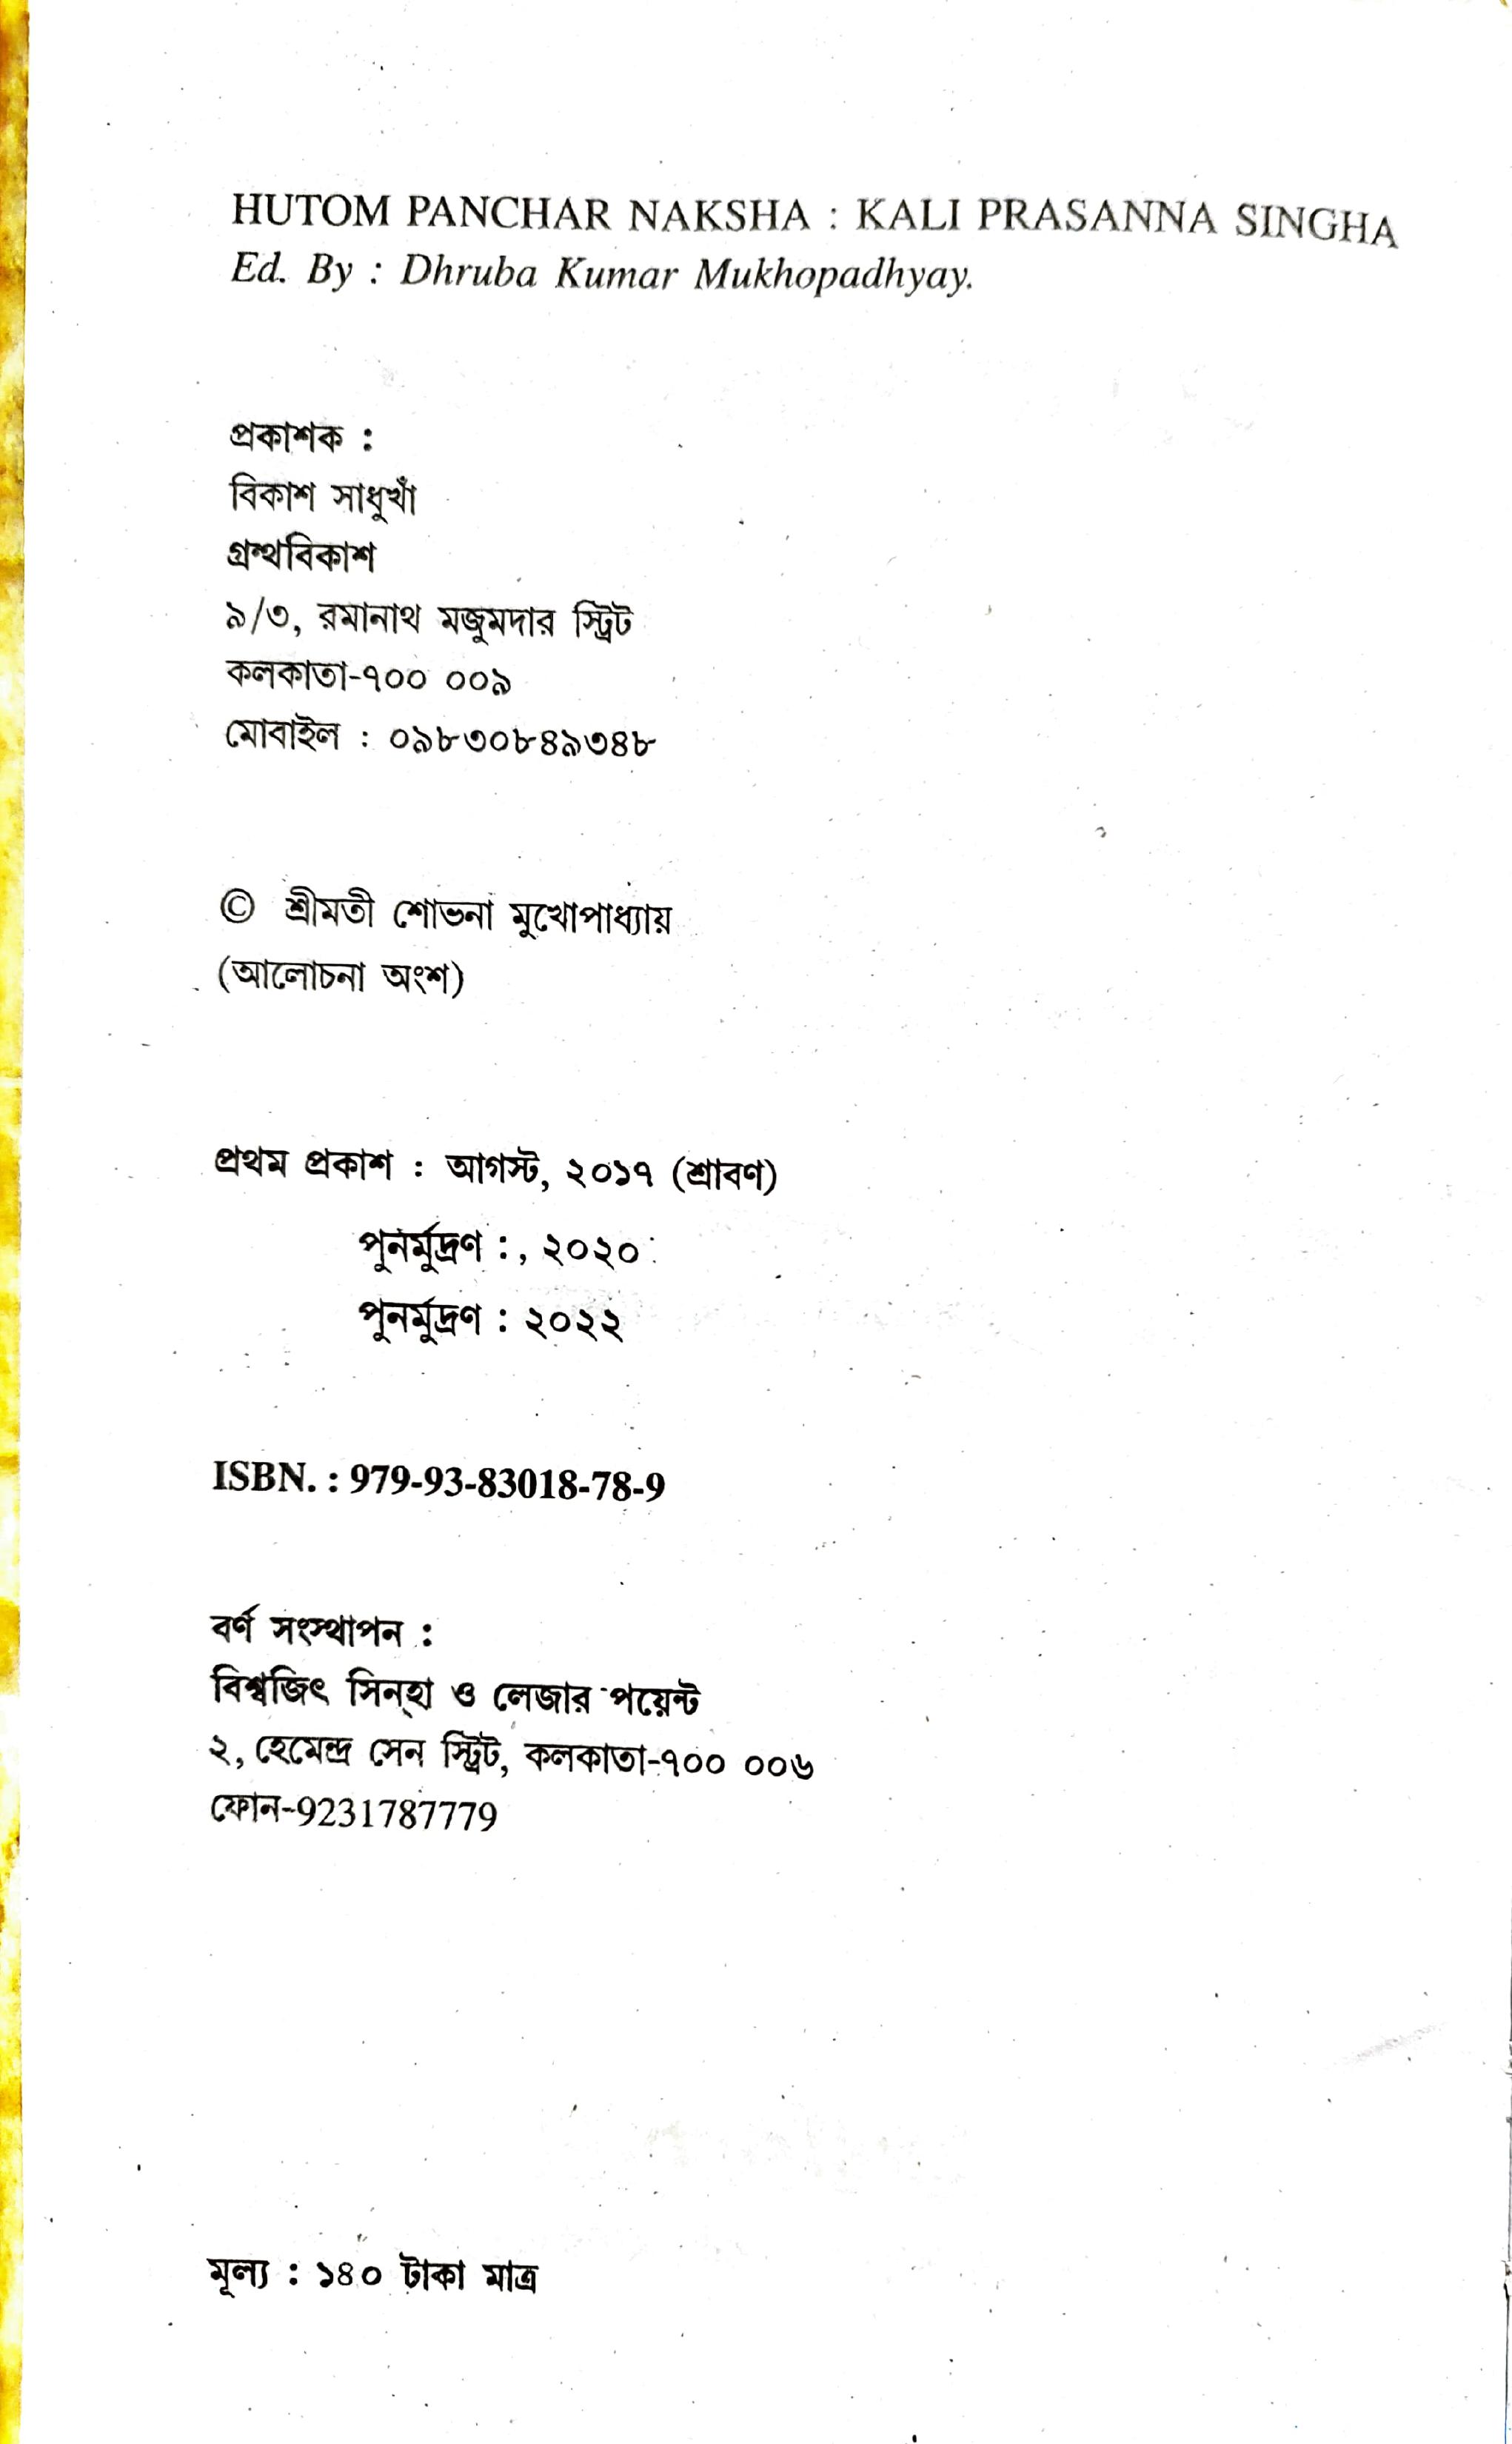 HUTOM PANCHAR NAKSHA : KALI PRASANNA SINGHA
Ed. By : Dhruba Kumar Mukhopadhyay.
প্রকাশক :
বিকাশ সাধুখাঁ
গ্রন্থবিকাশ
৯/৩, রমানাথ মজুমদার স্ট্রিট
কলকাতা-৭০০ ০০৯
মোবাইল : ০৯৮৩০৮৪৯৩৪৮
© শ্রীমতী শোভনা মুখোপাধ্যায়
(আলোচনা অংশ)
প্রথম প্রকাশ : আগস্ট, ২০১৭ (শ্রাবণ)
পুনর্মুদ্রণ : , ২০২০
পুনর্মুদ্রণ : ২০২২
ISBN. : 979-93-83018-78-9
বর্ণ সংস্থাপন :
বিশ্বজিৎ সিন্‌হা ও লেজার পয়েন্ট
২, হেমেন্দ্র সেন স্ট্রিট, কলকাতা-৭০০ ০০৬
ফোন-9231787779
মূল্য : ১৪০ টাকা মাত্র